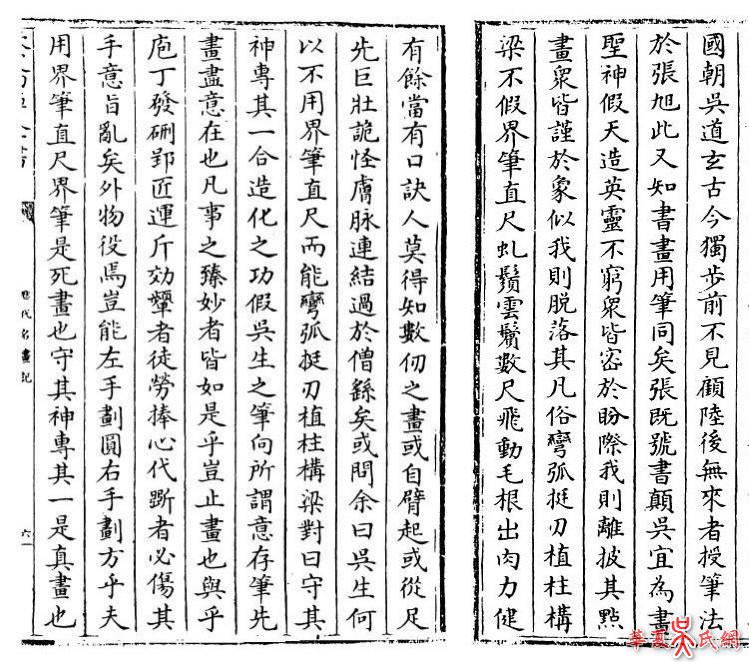 國朝吳道玄古今獨步前不見顧陸後無來者授筆法
於張旭此又知書畫用筆同矣張既號書顛吳宜為畫
聖神假天造英靈不窮眾皆密於盻際我則離披其點
畫眾皆謹於象似我則脫落其凡俗彎弧挺刃植柱構
梁不假界筆直尺虬鬚雲鬢數尺飛動毛根出肉力健
有餘當有口訣人莫得知數仞之畫或自臂起或從足
先巨壯詭怪膚脉連結過於僧繇矣或問余曰吳生何
以不用界筆直尺而能彎弧挺刃植柱構梁對曰守其
神專其一合造化之功假吳生之筆向所謂意存筆先
畫盡意在也凡事之臻妙者皆如是乎豈止畫也與乎
庖丁發硎郢匠運斤効顰者徒勞捧心代斲者必傷其
手意旨亂矣外物役焉豈能左手劃圓右手劃方乎夫
用界筆直尺界筆是死畫也守其神專其一是真畫也
歷代名畫記
六
華夏吳氏網